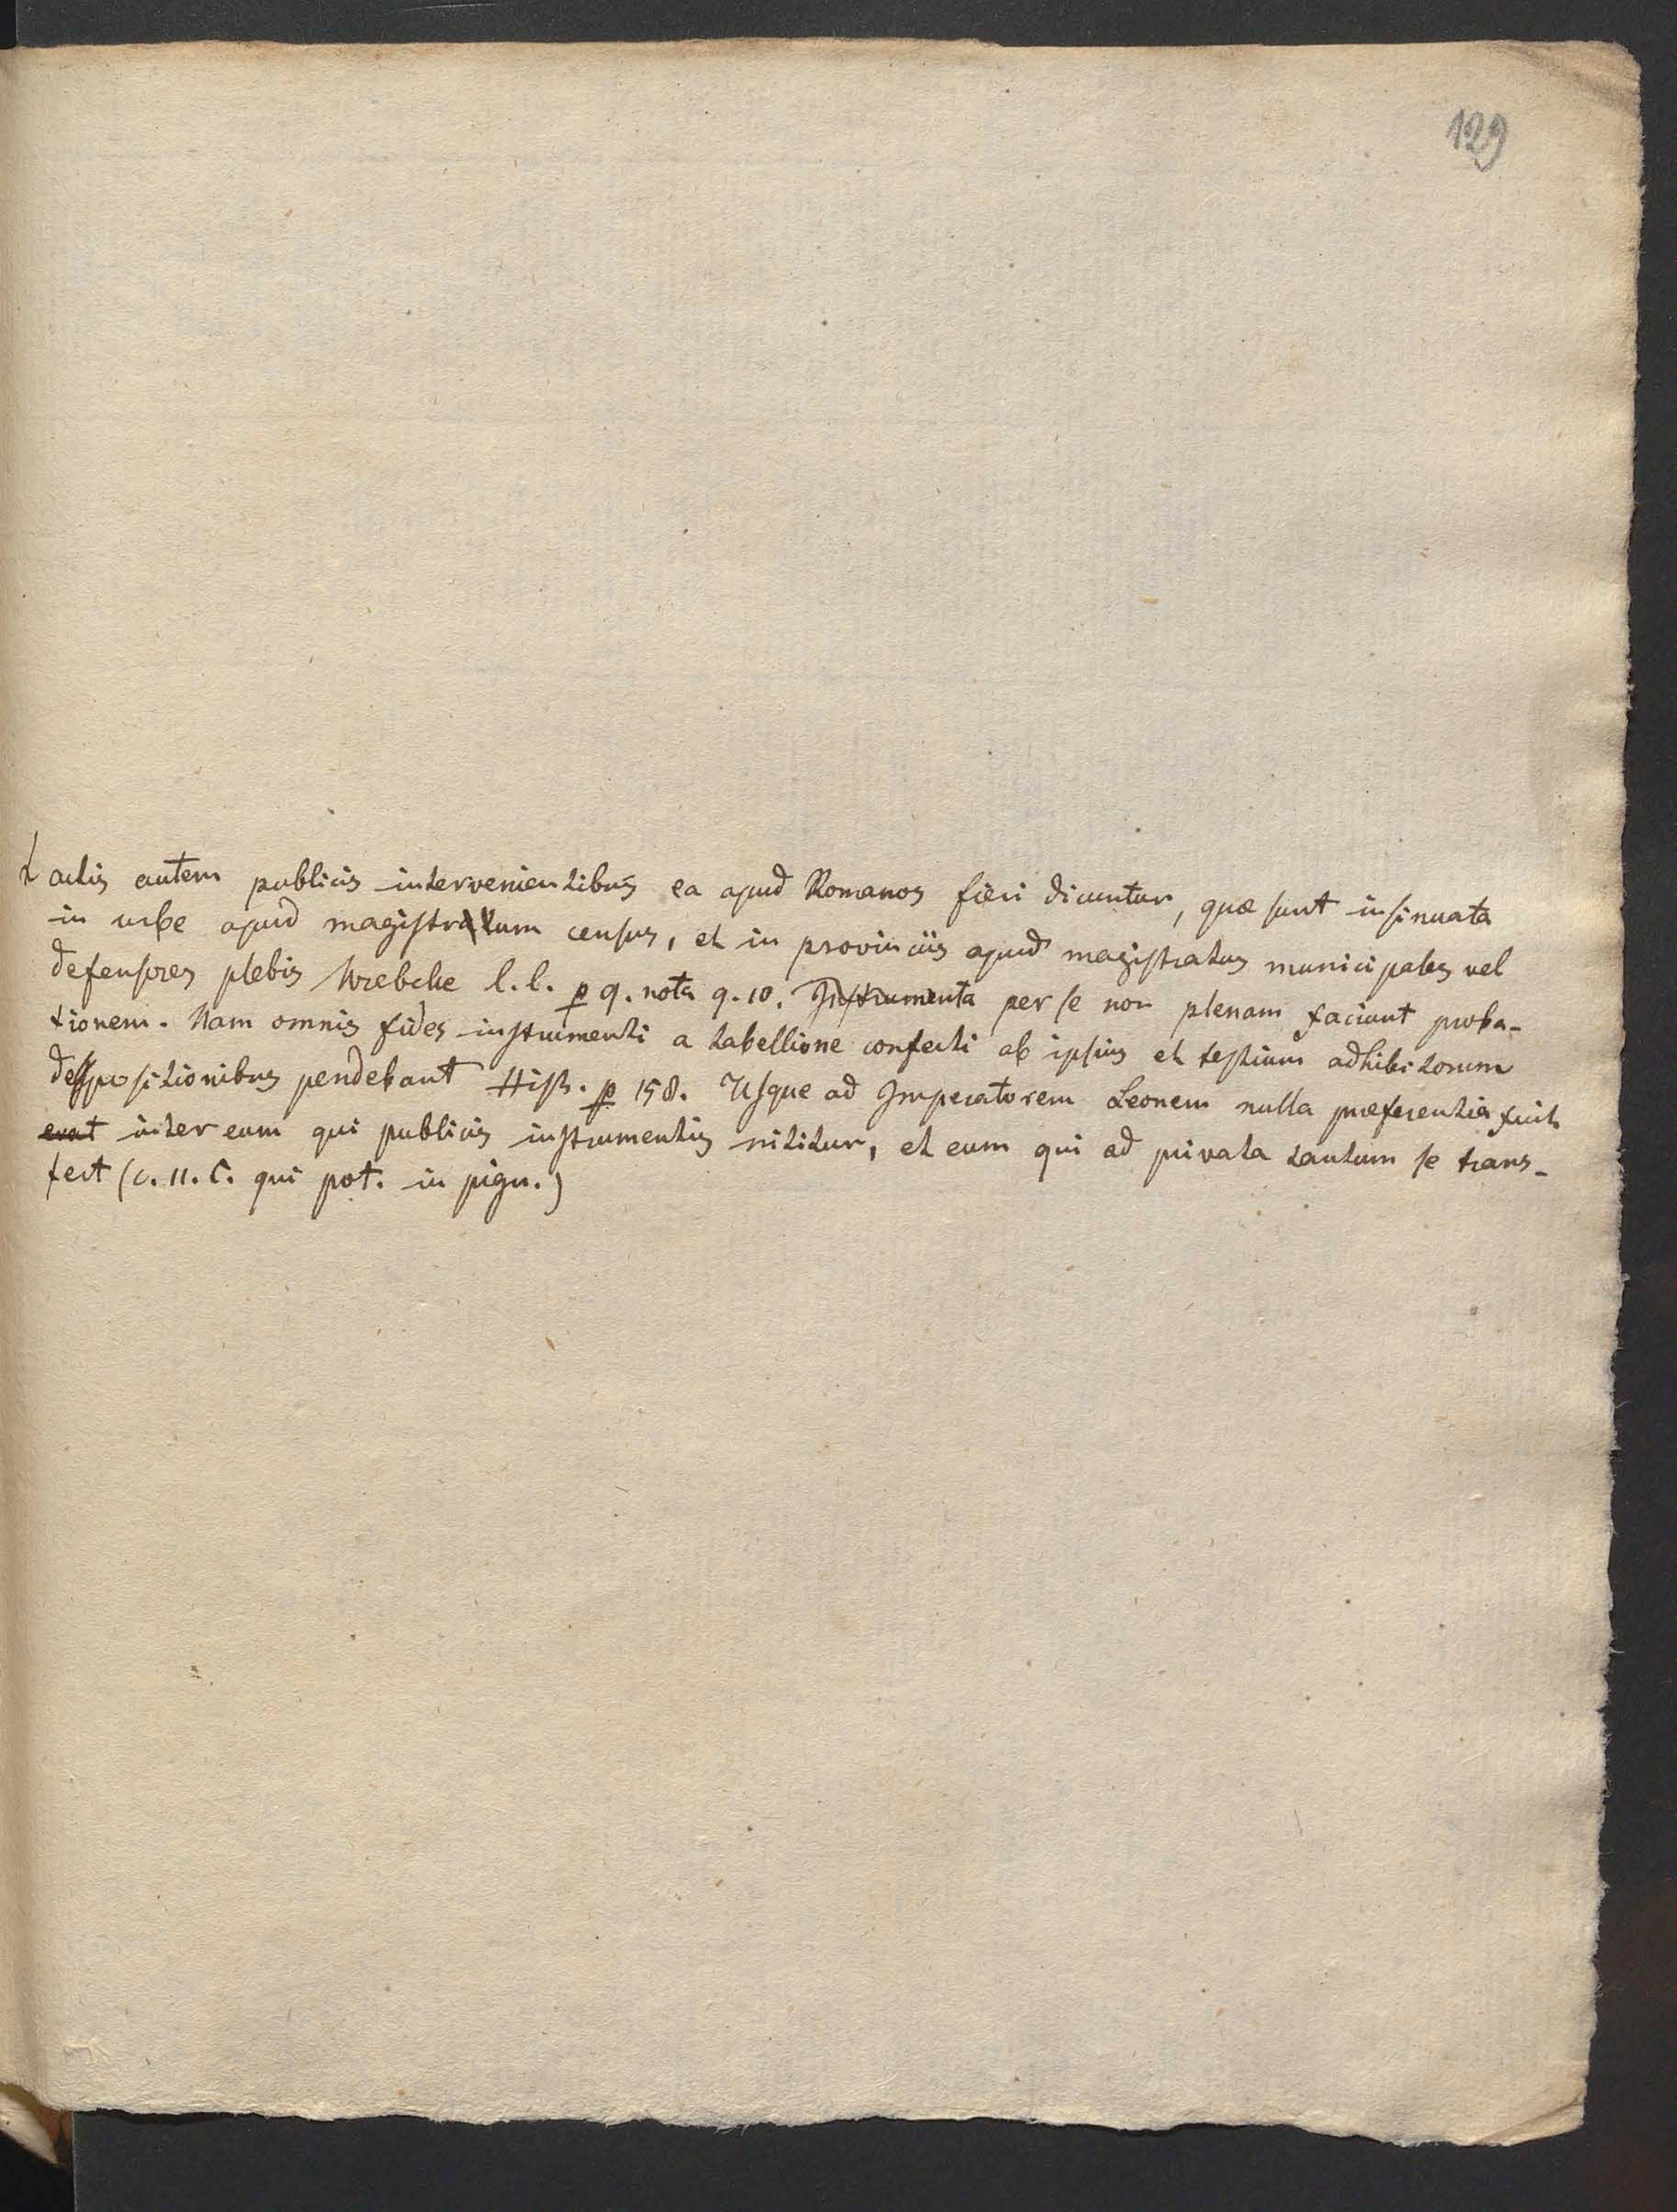 129
actis autem publicis intervenientibus ea apud Romanos fieri dicuntur, quæ sunt insinuata
in urbe apud magistratum census, et in provinciis apud magistratus municipales vel
defensores plebis l. l. p 9. nota 9. 10. Instrumenta per se non plenam faciunt proba-
tionem. Nam omnis fides instrumenti a tabellione confecti ab ipsius et testium adhibitorum
depositionibus pendebant Hist. p 158. Usque ad Imperatorem Leonem nulla præferentia fuit
erat inter eum qui publicis instrumentis nititur, et eum qui ad privata tantum se trans-
fert (c. 11. C. qui pot. in pign.)